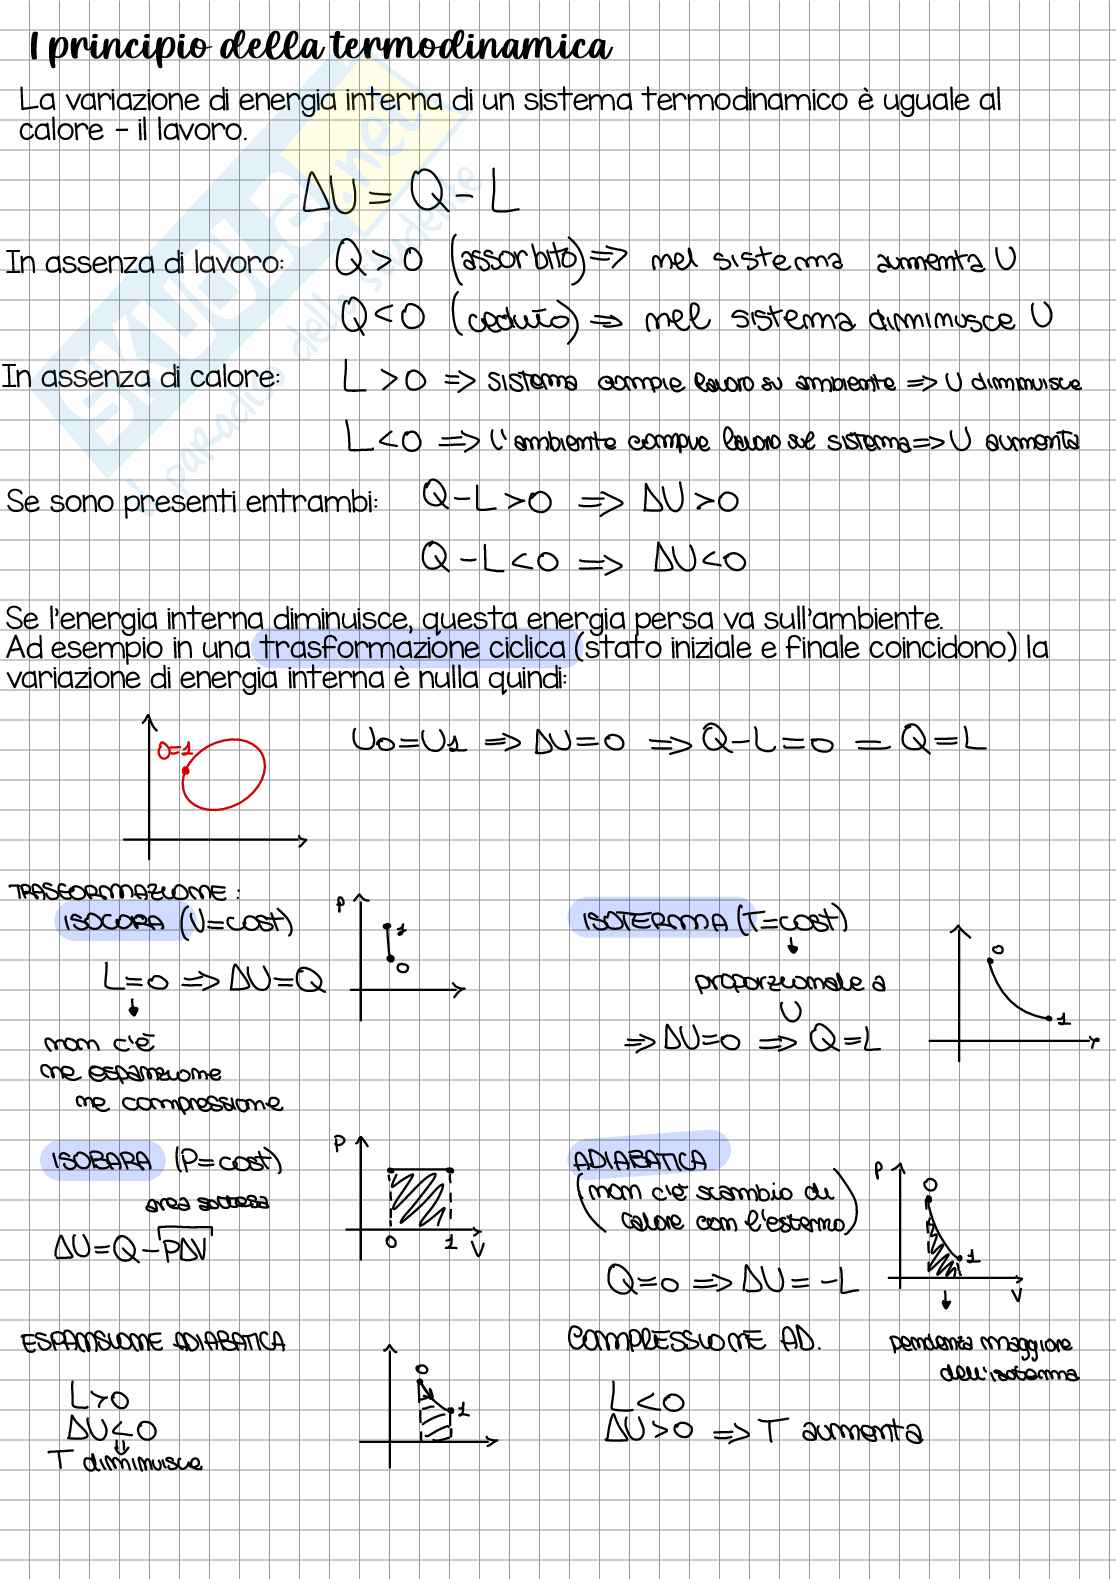 I principio della termodinamica
La variazione di energia interna di un sistema termodinamico è uguale al
calore - il lavoro.
ΔU = Q - L
In assenza di lavoro: Q > 0 (assorbito) => nel sistema aumenta U
Q < 0 (ceduto) => nel sistema diminuisce U
In assenza di calore: L > 0 => sistema compie lavoro su ambiente => U diminuisce
L < 0 => l'ambiente compie lavoro sul sistema => U aumenta
Se sono presenti entrambi: Q - L > 0 => ΔU > 0
Q - L < 0 => ΔU < 0
Se l'energia interna diminuisce, questa energia persa va sull'ambiente.
Ad esempio in una trasformazione ciclica (stato iniziale e finale coincidono) la
variazione di energia interna è nulla quindi:
0=1
U0 = U1 => ΔU = 0 => Q - L = 0 = Q = L
TRASFORMAZIONE:
ISOCORA (V=cost)
L = 0 => ΔU = Q
↓
non c'è
ne espansione
ne compressione
P
1
0
ISOTERMA (T=cost)
↓
proporzionale a
U
=> ΔU = 0 => Q = L
0
1
ISOBARA (P=cost)
area sottesa
ΔU = Q - PΔV
P
0 1 V
ADIABATICA
(non c'è scambio di
calore con l'esterno)
Q = 0 => ΔU = -L
P
0
1
V
↓
pendenza maggiore
dell'isoterma
ESPANSIONE ADIABATICA
L > 0
ΔU < 0
⇓
T diminuisce
0
1
COMPRESSIONE AD.
L < 0
ΔU > 0 => T aumenta
SKUOLA.net
il paradiso dello studente